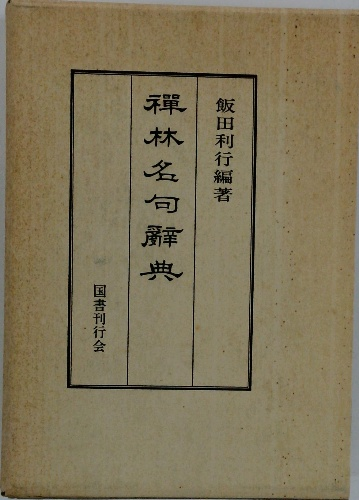 飯田利行編著
禪林名句辭典
国書刊行会